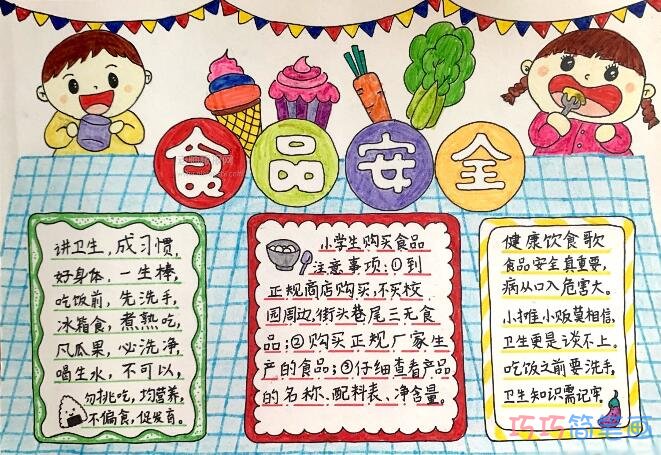 食品安全
讲卫生，成习惯，
好身体，一生棒，
吃饭前，先洗手，
冰箱食，煮熟吃，
凡瓜果，必洗净，
喝生水，不可以，
勿挑吃，均营养，
不偏食，促发育。
小学生购买食品
注意事项：①到
正规商店购买，不买校
园周边，街头巷尾三无食
品；②购买正规厂家生
产的食品；③仔细查看产品
的名称、配料表、净含量。
健康饮食歌
食品安全真重要，
病从口入危害大。
小摊小贩莫相信，
卫生更是谈不上。
吃饭之前要洗手，
卫生知识需记牢。
巧巧简笔画